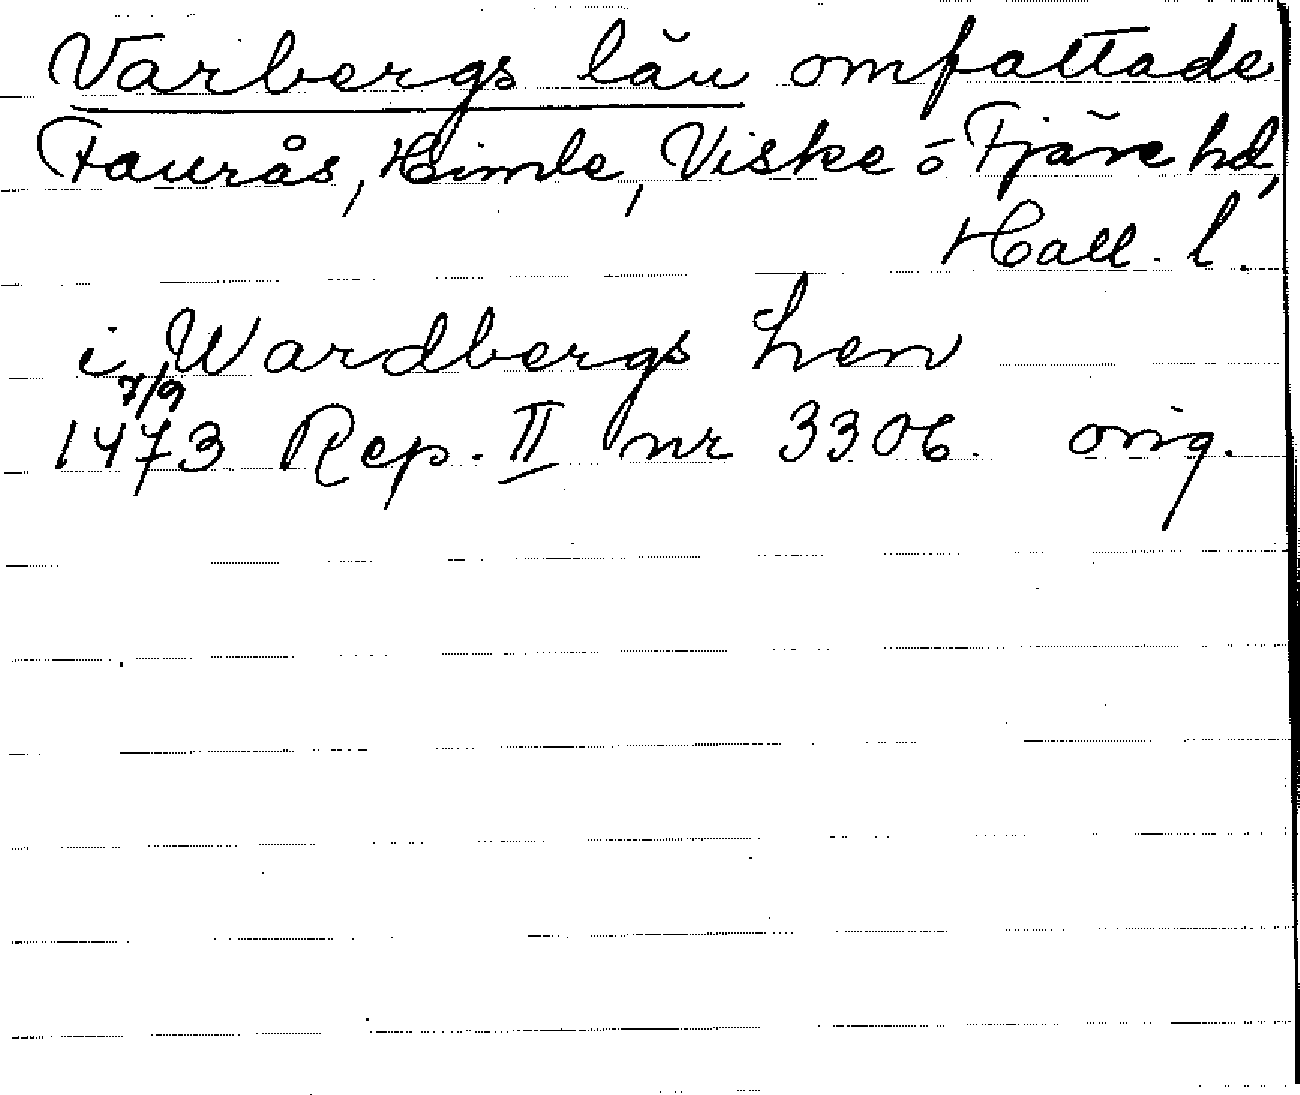 Varbergs län omfattade
Faurås, Himle, Viske o Fjäre hd,
Hall. l.
i Wardbergs Len
7/9
1473 Rep. II nr 3306. orig.